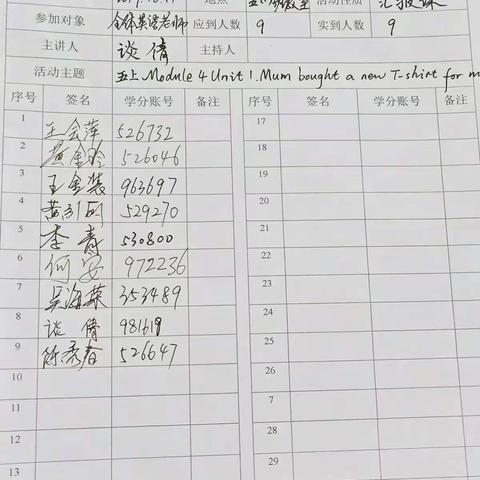 地点 活动性质 汇报课
参加对象 全体英语老师 应到人数 9 实到人数 9
主讲人 谈倩 主持人
活动主题 五上Module 4 Unit 1.Mum bought a new T-shirt for m
序号 签名 学分账号 备注 序号 签名 学分账号 备注
1 王会萍 526732 17
2 黄金玲 526046 18
3 王金装 963697 19
4 黄引 529270 20
5 李青 530800 21
6 何安 972236 22
7 吴海燕 353489 23
8 谈倩 981619 24
9 陈秀春 526647 25
10 26
11 27
12 28
13 29